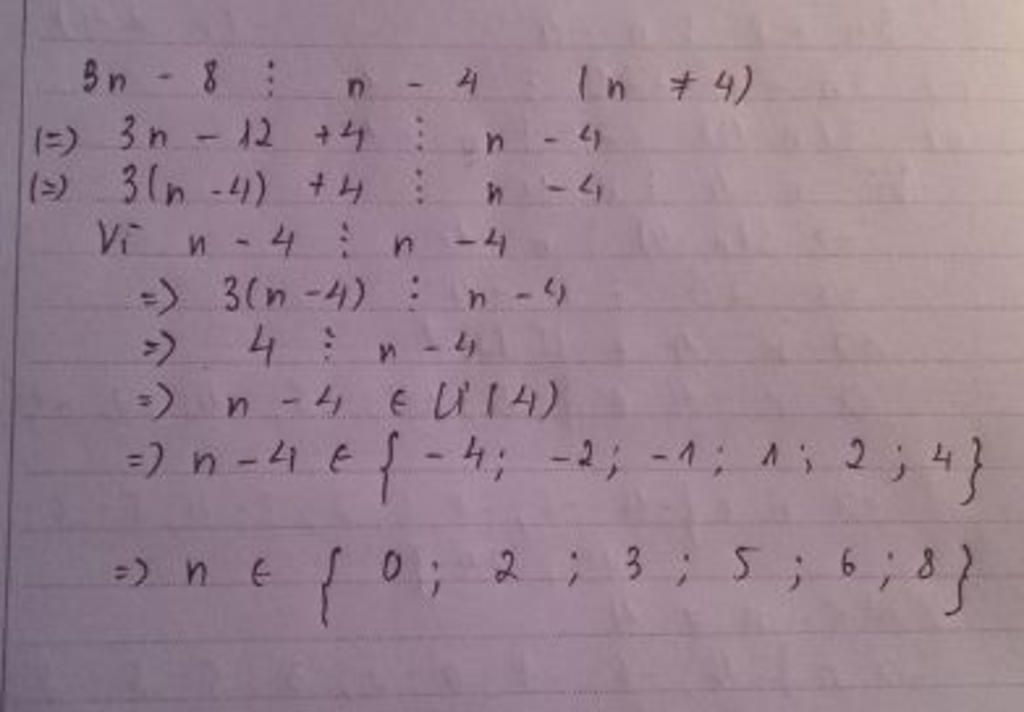 3n - 8 ⋮ n - 4 (n ≠ 4)
(=) 3n - 12 + 4 ⋮ n - 4
(=) 3(n - 4) + 4 ⋮ n - 4
Vì n - 4 ⋮ n - 4
=) 3(n - 4) ⋮ n - 4
=) 4 ⋮ n - 4
=) n - 4 ∈ Ư(4)
=) n - 4 ∈ { - 4; -2; -1; 1; 2; 4}
=) n ∈ { 0; 2; 3; 5; 6; 8}